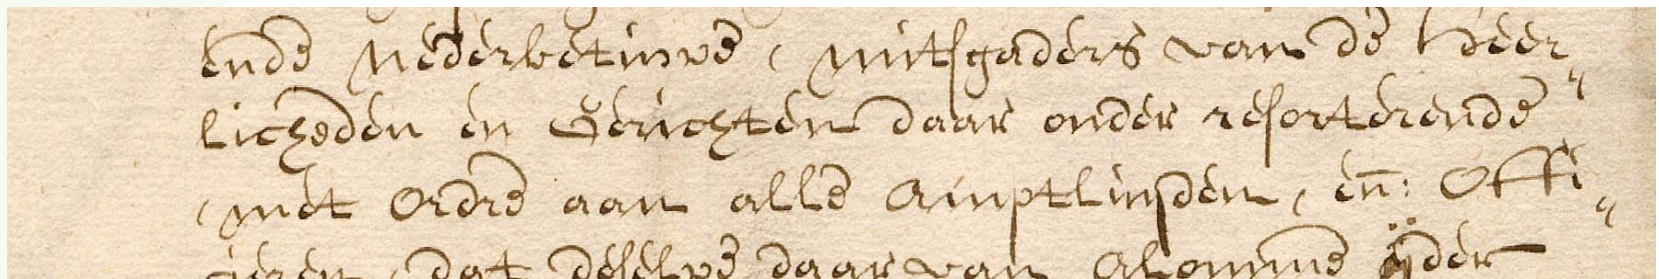 ende Nederbetuwe, mitsgaders van de Heer„
licheden en Gerichten daar onder resorterende
, met ordre aan alle Amptluijden, en: Offi„
cieren, dat deselve daar van alomme ijder